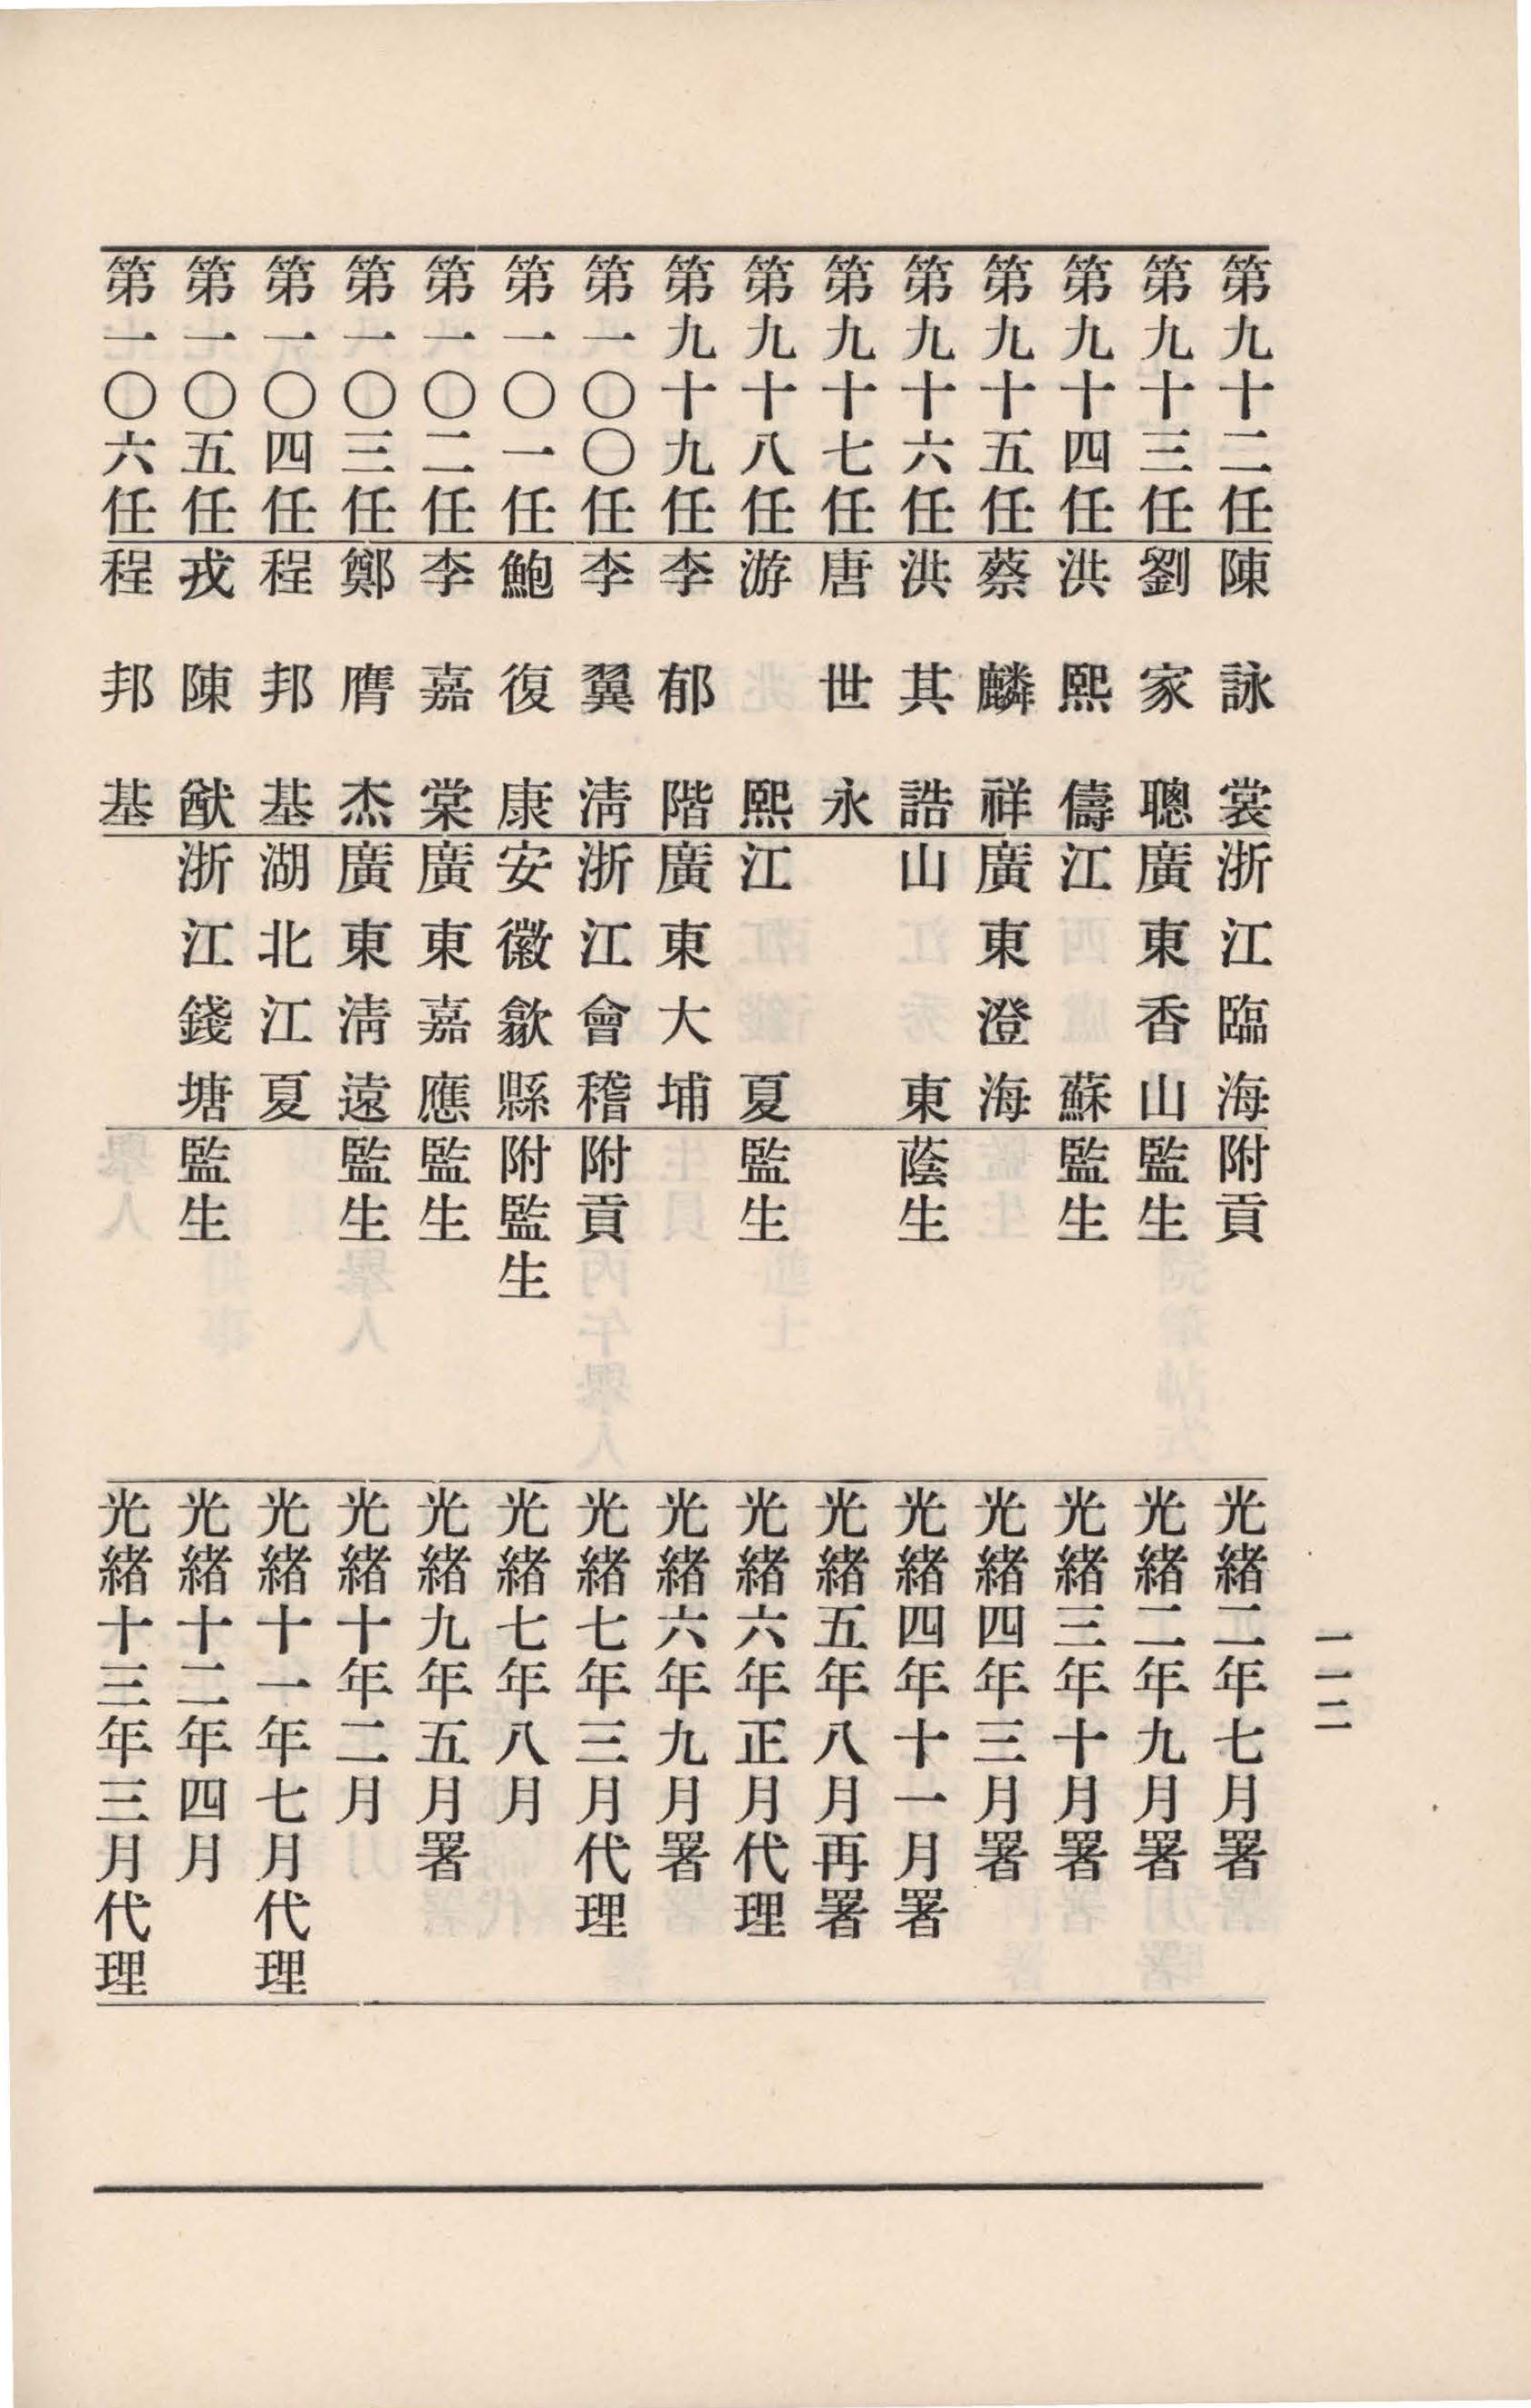 第九十二任 陳詠裳 浙江臨海 附貢 光緒二年七月署
第九十三任 劉家聰 廣東香山 監生 光緒二年九月署
第九十四任 洪熙儔 江蘇 監生 光緒三年十月署
第九十五任 蔡麟祥 廣東澄海 光緒四年三月署
第九十六任 洪其誥 山東 蔭生 光緒四年十一月署
第九十七任 唐世永 光緒五年八月再署
第九十八任 游熙 江夏 監生 光緒六年正月代理
第九十九任 李郁階 廣東大埔 光緒六年九月署
第一〇〇任 李翼淸 浙江會稽 附貢 光緒七年三月代理
第一〇一任 鮑復康 安徽歙縣 附監生 光緒七年八月
第一〇二任 李嘉棠 廣東嘉應 監生 光緒九年五月署
第一〇三任 鄭膺杰 廣東淸遠 監生 光緒十年二月
第一〇四任 程邦基 湖北江夏 光緒十一年七月代理
第一〇五任 戎陳猷 浙江錢塘 監生 光緒十二年四月
第一〇六任 程邦基 光緒十三年三月代理
一一二